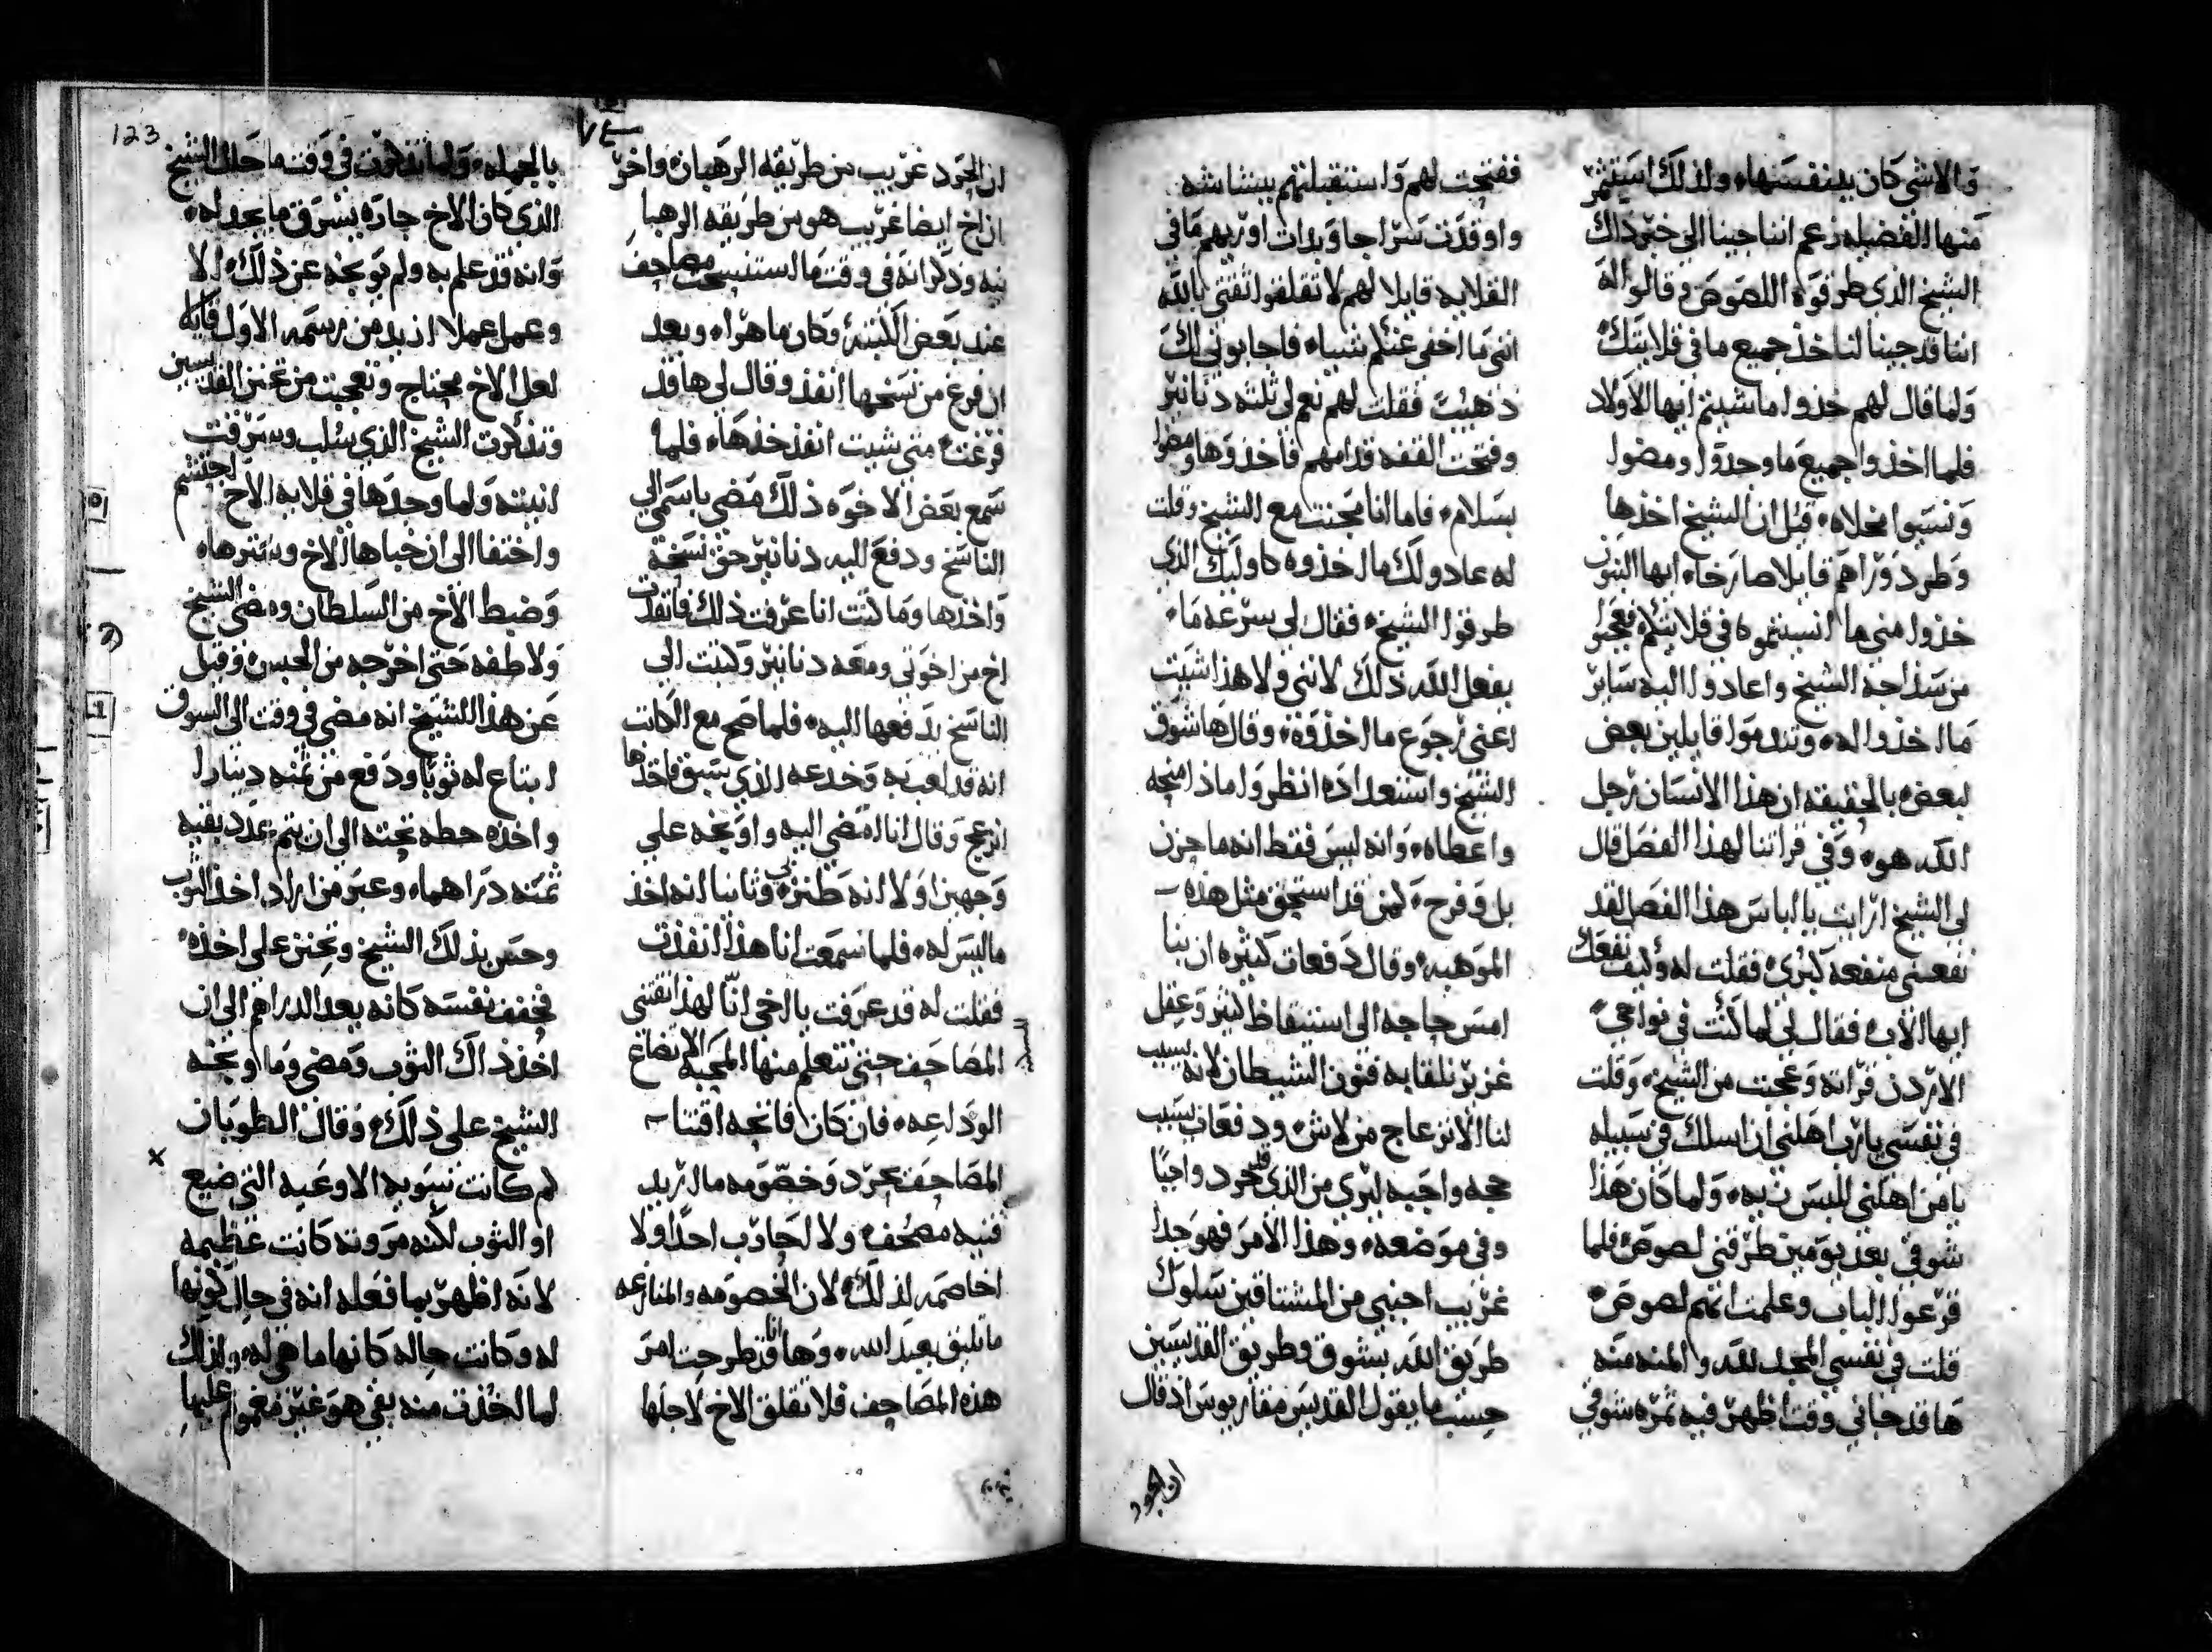 والاشي كان يدنفسنها ولذلك استثمر
منها الفضيله زعم اننا جينا الي خبر ذاك
الشيخ الذي طرقوه اللصوص وقالوا له
اننا قد جينا لناخذ جميع ما في قلايتك
ولما قال لهم خذوا ما شيتم ايها الاولاد
فلما اخذوا جميع ما وجدوا ومضوا
ونسيوا مخلاه قيل ان الشيخ اخذها
وطرد وراهم قايلا صارخا ايها البنون
خذوا مني ها انسيتموه في قلايتكم فعجبوا
من سذاجة الشيخ واعادوا اليه ساير
ما اخذوا له وتندموا قايلين بعض
لبعض بالحقيقه ان هذا الانسان رجل
الله هو وفي قراتنا لهذا الفصل قال
لي الشيخ ارايت يا اباس هذا الفصل لقد
نفعني منفعه كبري فقلت له وكيف نفعك
ايها الاب فقال لي لما كنت في نواحي
الاردن قراته وعجبت من الشيخ وقلت
في نفسي يا رب اهلني ان اسلك في سبيله
يا من اهلني اللبس زيه ولما كان هذا
شوقي بعد يومين طرقني لصوص فلما
قرعوا الباب وعلمت انهم لصوص
قلت في نفسي المجد لله والمنه منه
ها قد جاني وقت اظهر فيه ثمره شوقي
ففتحت لهم واستقبلتهم ببشاشه
واوقدت سراجا وبدات اوريهم ما في
القلايه قايلا لهم لا تقلقوا ثقتي بالله
انني ما اخفي عنكم شيا فاجابوني الك
ذهبت فقلت لهم نعم لي ثلثه دنانير
وفتحت القفه قدامهم فاخذوها ومضوا
بسلام فاما انا مجنت مع الشيخ وقلت
له عادولك ما اخذوه كاوليك الذي
طرقوا الشيخ فقال لي بسرعه ما
يفعل الله ذلك لانني ولا هذا اشيت
اعني رجوع ما اخذوه وقال ها شوق
الشيخ واستعداده انظروا ماذا منحه
واعطاه وانه ليس فقط انه ما حزن
بل وفرح كمن قد استحق مثل هذه
الموهبه وقال دفعات كثيره ان بنا
امس حاجه الي استيقاظ كثير وعقل
غزير نلقا به فنون الشيطان لانه يسبب
لنا الانزعاج من لاشي ودفعات يسبب
حجه واجبه ليري من الذي قد جرد واجبا
وفي موضعه وهذا الامر فهو جدا
غريب اجنبي من المشتاقين سلوك
طريق الله بشوق وطريق القديسين
حسب ما يقول القديس مقاريوس اذ قال
ان الجرد
ان الجرد غريب من طريقه الرهبان واخر
ان اخ ايضا غريب هو من طريقه الرهبا
نيه وذكر انه في وقت ما استنسخت مصاحف
عند بعض الكتبه وكان ماهرا وبعد
ان فرغ من نسخها انفذ وقال لي ها قد
فرغت متي شيت انفذ خذها فلما
سمع بعض الاخوه ذلك مضي باسمي الي
الناسخ ودفع اليه دنانير حق نسخه
واخذها وما كنت انا عرفت ذلك فانفذت
اخ من اخوتي ومعه دنانير وكتبت الي
الناسخ يدفعها اليه فلما صح مع الكاتب
انه قد لعب به وخدعه الذي سبق فاخذها
انزعج وقال انا امضي اليه واوبخه علي
وجهين اولا انه طنز بي وثانيا انه اخذ
ما ليس له فلما سمعت انا هذا انفذت
فقلت له قد عرفت يا اخي انا لهذا نقتني
المصاحف حتي نتعلم منها المحبه الاتضاع
الوداعه فان كان فاتحه اقتنا
المصاحف بجرد وخصومه ما اريد
قنيه مصحف ولا لحارب احدا ولا
اخاصمه لذلك لان الخصومه والمنازعه
ما تليق بعبد الله وها انا قد طرحت امر
هذه المصاحف فلا تقلق الاخ لاجلها
123
٧٤
بالجمله ولما تذكرت في وقت ما حال الشيخ
الذي كان الاخ جاره يسرق ما يجد له
وانه قد علم به ولم يوبخه عن ذلك الا
وعمل عملا ازيد من رسمه الاول قايلا
لعل الاخ محتاج وتعجبت من تحنن القديسين
وتذكرت الشيخ الذي سلب وسرقت
انيته ولما وجدها في قلايه الاخ احتشم
واختفا الي ان خباها الاخ وسترها
وضبط الاخ من السلطان ومضي الشيخ
ولاطفه حتي اخرجه من الحبس وقيل
عن هذا الشيخ انه مضي في وقت الي السوق
ابتاع له ثوبا ودفع من ثمنه دينارا
واخذه حطه تحته الي ان يتم عدد بقيه
ثمنه دراهما وعبر من اراد اخذ الثوب
وحس بذلك الشيخ وتحنن علي اخذه
فخفف نفسه كانه يعد الدراهم الي ان
اخذ ذاك الثوب ومضي وما اوبخه
الشيخ علي ذلك وقال الطوبان
لم كانت تسويه الاوعيه التي ضيع
او الثوب لكنه مروته كانت عظيمه
لانه اظهر بما فعله انه في حال كونها
له وكانت حاله كانها ما هي له واذلك
لما اخذت منه بقي هو غير مغموم عليها